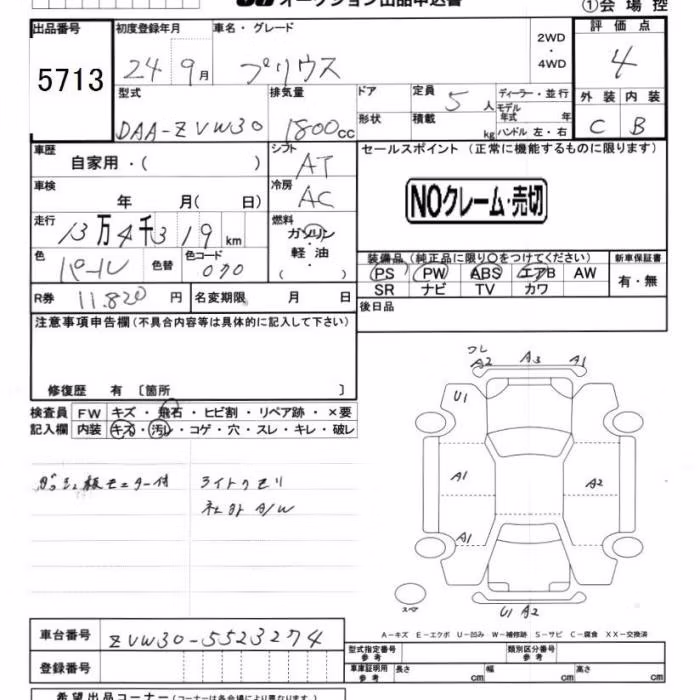 オークション出品申込書
①会場控
出品番号 5713
初度登録年月 24年 9月
車名・グレード プリウス
2WD・4WD
評価点 4
型式 DAA-ZVW30
排気量 1800cc
ドア
形状
定員 5人
積載 kg
ディーラー・並行
モデル年式 年
ハンドル 左・右
外装 C
内装 B
車歴 自家用・( )
シフト AT
車検 年 月( 日)
冷房 AC
走行 13万4千319km
燃料 ガソリン 軽油 ( )
色 パール 色替
色コード 070
R券 11,820円
名変期限 月 日
セールスポイント (正常に機能するものに限ります)
NOクレーム・売切
装備品(純正品に限り○をつけてください)
PS PW ABS エアB AW
SR ナビ TV カワ
新車保証書 有・無
後日品
注意事項申告欄(不具合内容等は具体的に記入して下さい)
修復歴 有 〔箇所 〕
検査員記入欄
FW キズ・飛石・ヒビ割・リペア跡・×要
内装 キズ・汚レ・コゲ・穴・スレ・キレ・破レ
ライトクモリ
社外A/W
A2 A3 A1
U1
A1 A2
A1
スペア
U1 A2
A-キズ E-エクボ U-凹み W-補修跡 S-サビ C-腐食 XX-交換済
車台番号 ZVW30-5523274
登録番号
型式指定番号 参考
類別区分番号 参考
車庫証明用 参考 長さ cm 幅 cm 高さ cm
希望出品コーナー(コーナーは会場により異なります)